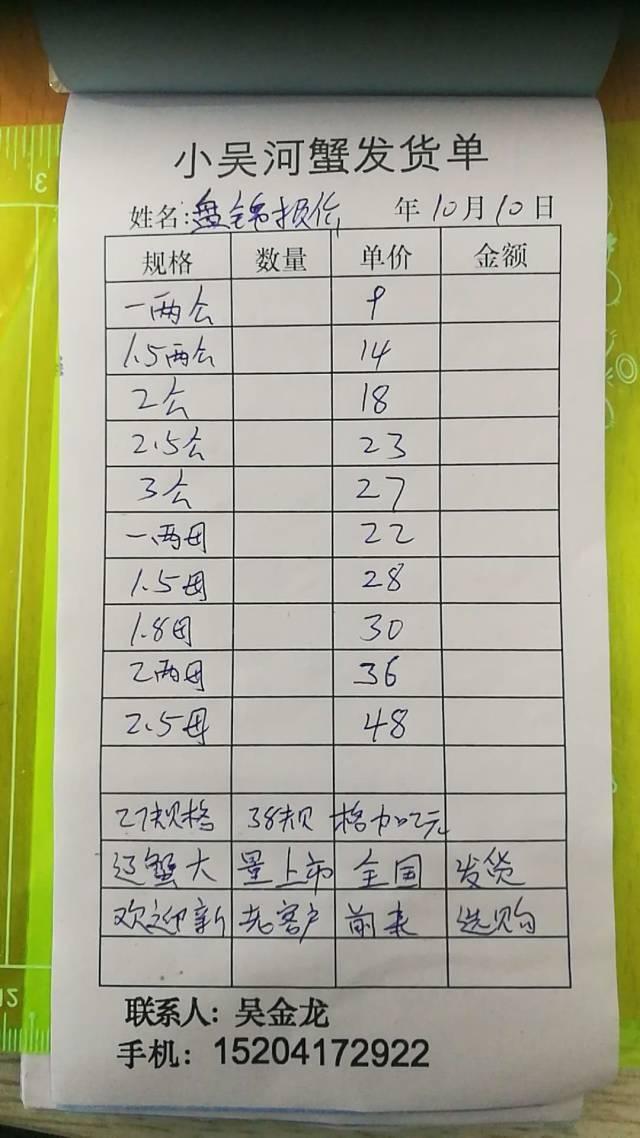 小吴河蟹发货单
姓名:盘锦报价 年10月10日
规格 数量 单价 金额
一两公 9
1.5两公 14
2公 18
2.5公 23
3公 27
一两母 22
1.5母 28
1.8母 30
2两母 36
2.5母 48
27规格 38规格加2元
辽蟹大量上市全国发货
欢迎新老客户前来选购
联系人:吴金龙
手机:15204172922